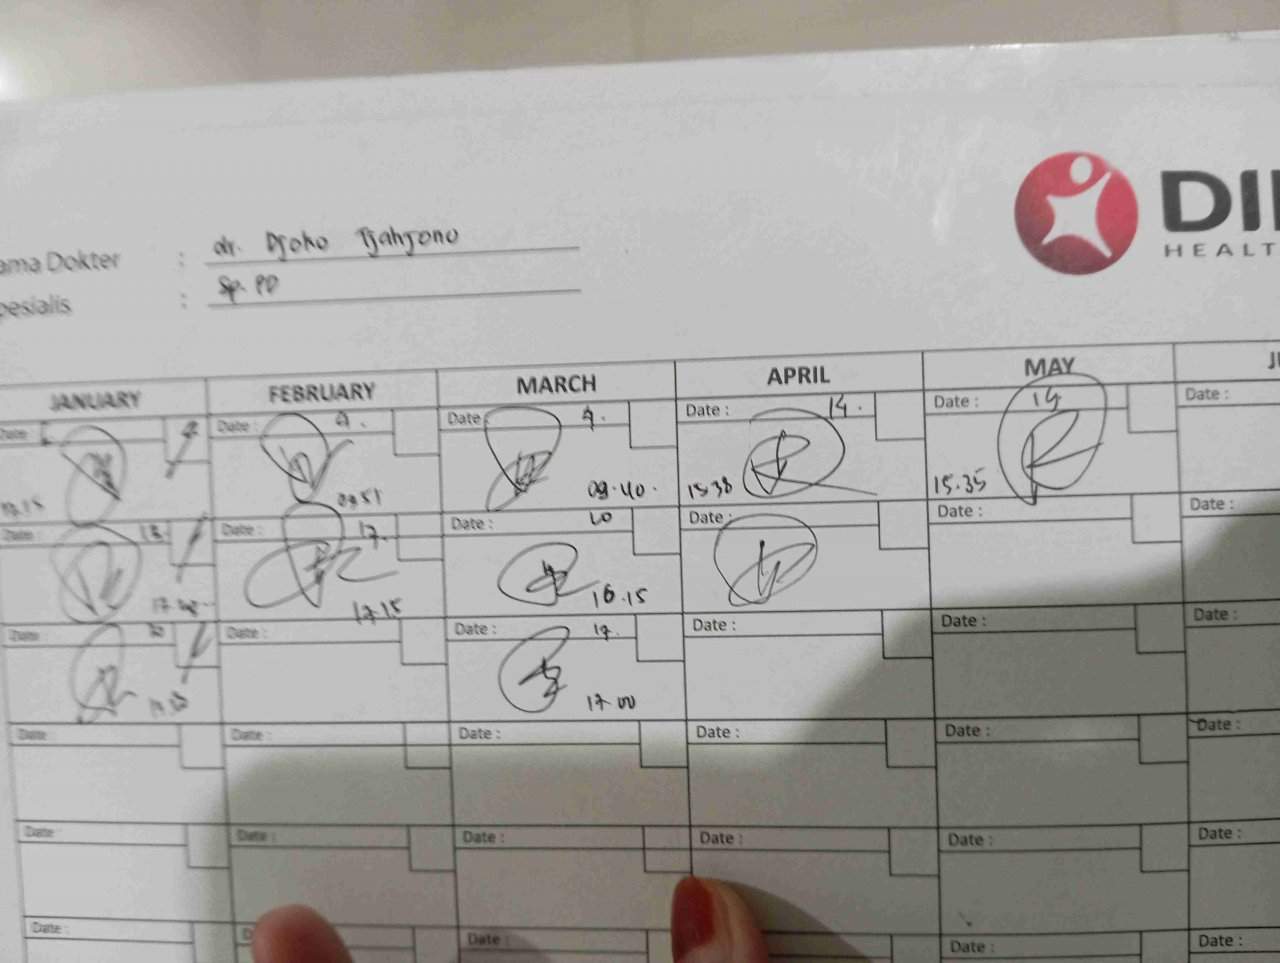 DI
HEALT
ama Dokter : dr. Djoko Tjahjono
pesialis : Sp. PD
JANUARY FEBRUARY MARCH APRIL MAY
Date Date : 9. Date : 9. Date : 14. Date : 14 Date :
09.51 09.40. 15.38 15.35
Date : 13. Date : 17. Date : 20 Date : Date : Date :
17.15 16.15
Date Date : Date : 17. Date : Date : Date :
17.00
Date Date : Date : Date : Date : Date :
Date Date : Date : Date : Date : Date :
Date : Date : Date : Date :